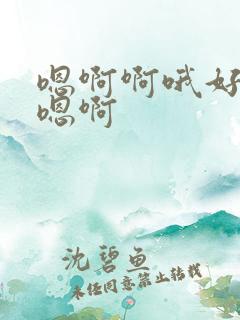 嗯啊啊哦好
嗯啊
沈碧鱼
未经同意禁止转载